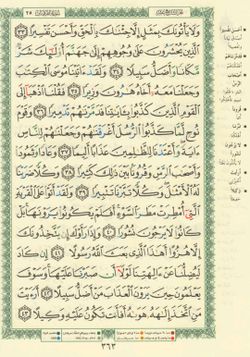 وَلَا يَأْتُونَكَ بِمَثَلٍ إِلَّا جِئْنَٰكَ بِٱلْحَقِّ وَأَحْسَنَ تَفْسِيرًا ٣٣
ٱلَّذِينَ يُحْشَرُونَ عَلَىٰ وُجُوهِهِمْ إِلَىٰ جَهَنَّمَ أُو۟لَٰٓئِكَ شَرٌّ
مَّكَانًا وَأَضَلُّ سَبِيلًا ٣٤ وَلَقَدْ ءَاتَيْنَا مُوسَى ٱلْكِتَٰبَ
وَجَعَلْنَا مَعَهُۥٓ أَخَاهُ هَٰرُونَ وَزِيرًا ٣٥ فَقُلْنَا ٱذْهَبَآ إِلَى
ٱلْقَوْمِ ٱلَّذِينَ كَذَّبُوا۟ بِـَٔايَٰتِنَا فَدَمَّرْنَٰهُمْ تَدْمِيرًا ٣٦ وَقَوْمَ
نُوحٍ لَّمَّا كَذَّبُوا۟ ٱلرُّسُلَ أَغْرَقْنَٰهُمْ وَجَعَلْنَٰهُمْ لِلنَّاسِ
ءَايَةً وَأَعْتَدْنَا لِلظَّٰلِمِينَ عَذَابًا أَلِيمًا ٣٧ وَعَادًا وَثَمُودَا۟
وَأَصْحَٰبَ ٱلرَّسِّ وَقُرُونًۢا بَيْنَ ذَٰلِكَ كَثِيرًا ٣٨ وَكُلًّا ضَرَبْنَا
لَهُ ٱلْأَمْثَٰلَ وَكُلًّا تَبَّرْنَا تَتْبِيرًا ٣٩ وَلَقَدْ أَتَوْا۟ عَلَى ٱلْقَرْيَةِ
ٱلَّتِىٓ أُمْطِرَتْ مَطَرَ ٱلسَّوْءِ أَفَلَمْ يَكُونُوا۟ يَرَوْنَهَا بَلْ
كَانُوا۟ لَا يَرْجُونَ نُشُورًا ٤٠ وَإِذَا رَأَوْكَ إِن يَتَّخِذُونَكَ
إِلَّا هُزُوًا أَهَٰذَا ٱلَّذِى بَعَثَ ٱللَّهُ رَسُولًا ٤١ إِن كَادَ
لَيُضِلُّنَا عَنْ ءَالِهَتِنَا لَوْلَآ أَن صَبَرْنَا عَلَيْهَا وَسَوْفَ
يَعْلَمُونَ حِينَ يَرَوْنَ ٱلْعَذَابَ مَنْ أَضَلُّ سَبِيلًا ٤٢ أَرَءَيْتَ
مَنِ ٱتَّخَذَ إِلَٰهَهُۥ هَوَىٰهُ أَفَأَنتَ تَكُونُ عَلَيْهِ وَكِيلًا ٤٣
٣٦٣